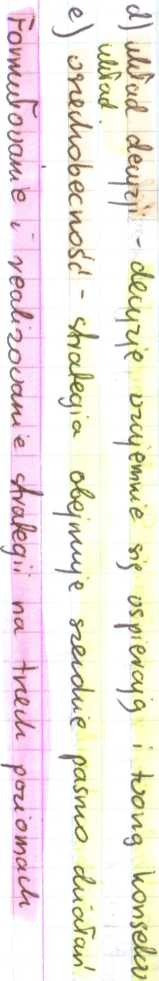 d) układ decyzji - decyzje wzajemnie się wspierają i tworzą konsekw
układ.
e) wszechobecność - strategia obejmuje szerokie pasmo działań.
Formułowanie i realizowanie strategii na trzech poziomach